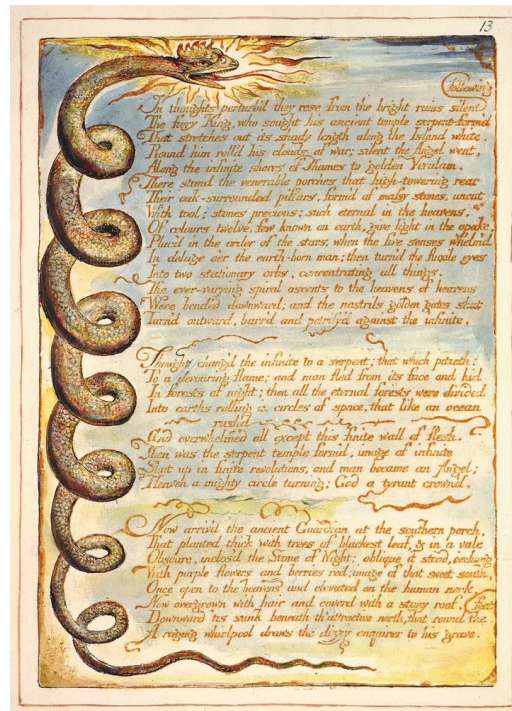 13
Following
In thoughts perturb'd they rose from the bright ruins silent
The fiery King, who sought his ancient temple serpent-form'd
That stretches out its shady length along the Island white.
Round him roll'd his clouds of war; silent the Angel went,
Along the infinite shores of Thames to golden Verulam.
There stand the venerable porches that high-towering rear
Their oak-surrounded pillars, form'd of massy stones, uncut
With tool; stones precious; such eternal in the heavens,
Of colours twelve, few known on earth, give light in the opake,
Plac'd in the order of the stars, when the five senses whelm'd
In deluge o'er the earth-born man; then turn'd the fluxile eyes
Into two stationary orbs, concentrating all things.
The ever-varying spiral ascents to the heavens of heavens
Were bended downward, and the nostrils golden gates shut
Turn'd outward, barr'd and petrify'd against the infinite.
Thought chang'd the infinite to a serpent; that which pitieth:
To a devouring flame; and man fled from its face and hid
In forests of night; then all the eternal forests were divided
Into earths rolling in circles of space, that like an ocean
rush'd
And overwhelmed all except this finite wall of flesh.
Then was the serpent temple form'd, image of infinite
Shut up in finite revolutions, and man became an Angel;
Heaven a mighty circle turning; God a tyrant crown'd.
Now arriv'd the ancient Guardian at the southern porch,
That planted thick with trees of blackest leaf, & in a vale
Obscure, inclos'd the Stone of Night; oblique it stood, o'erhung
With purple flowers and berries red; image of that sweet south,
Once open to the heavens and elevated on the human neck,
Now overgrown with hair and cover'd with a stony roof,
Downward 'tis sunk beneath th' attractive north, that round the
A raging whirlpool draws the dizzy enquirer to his grave.